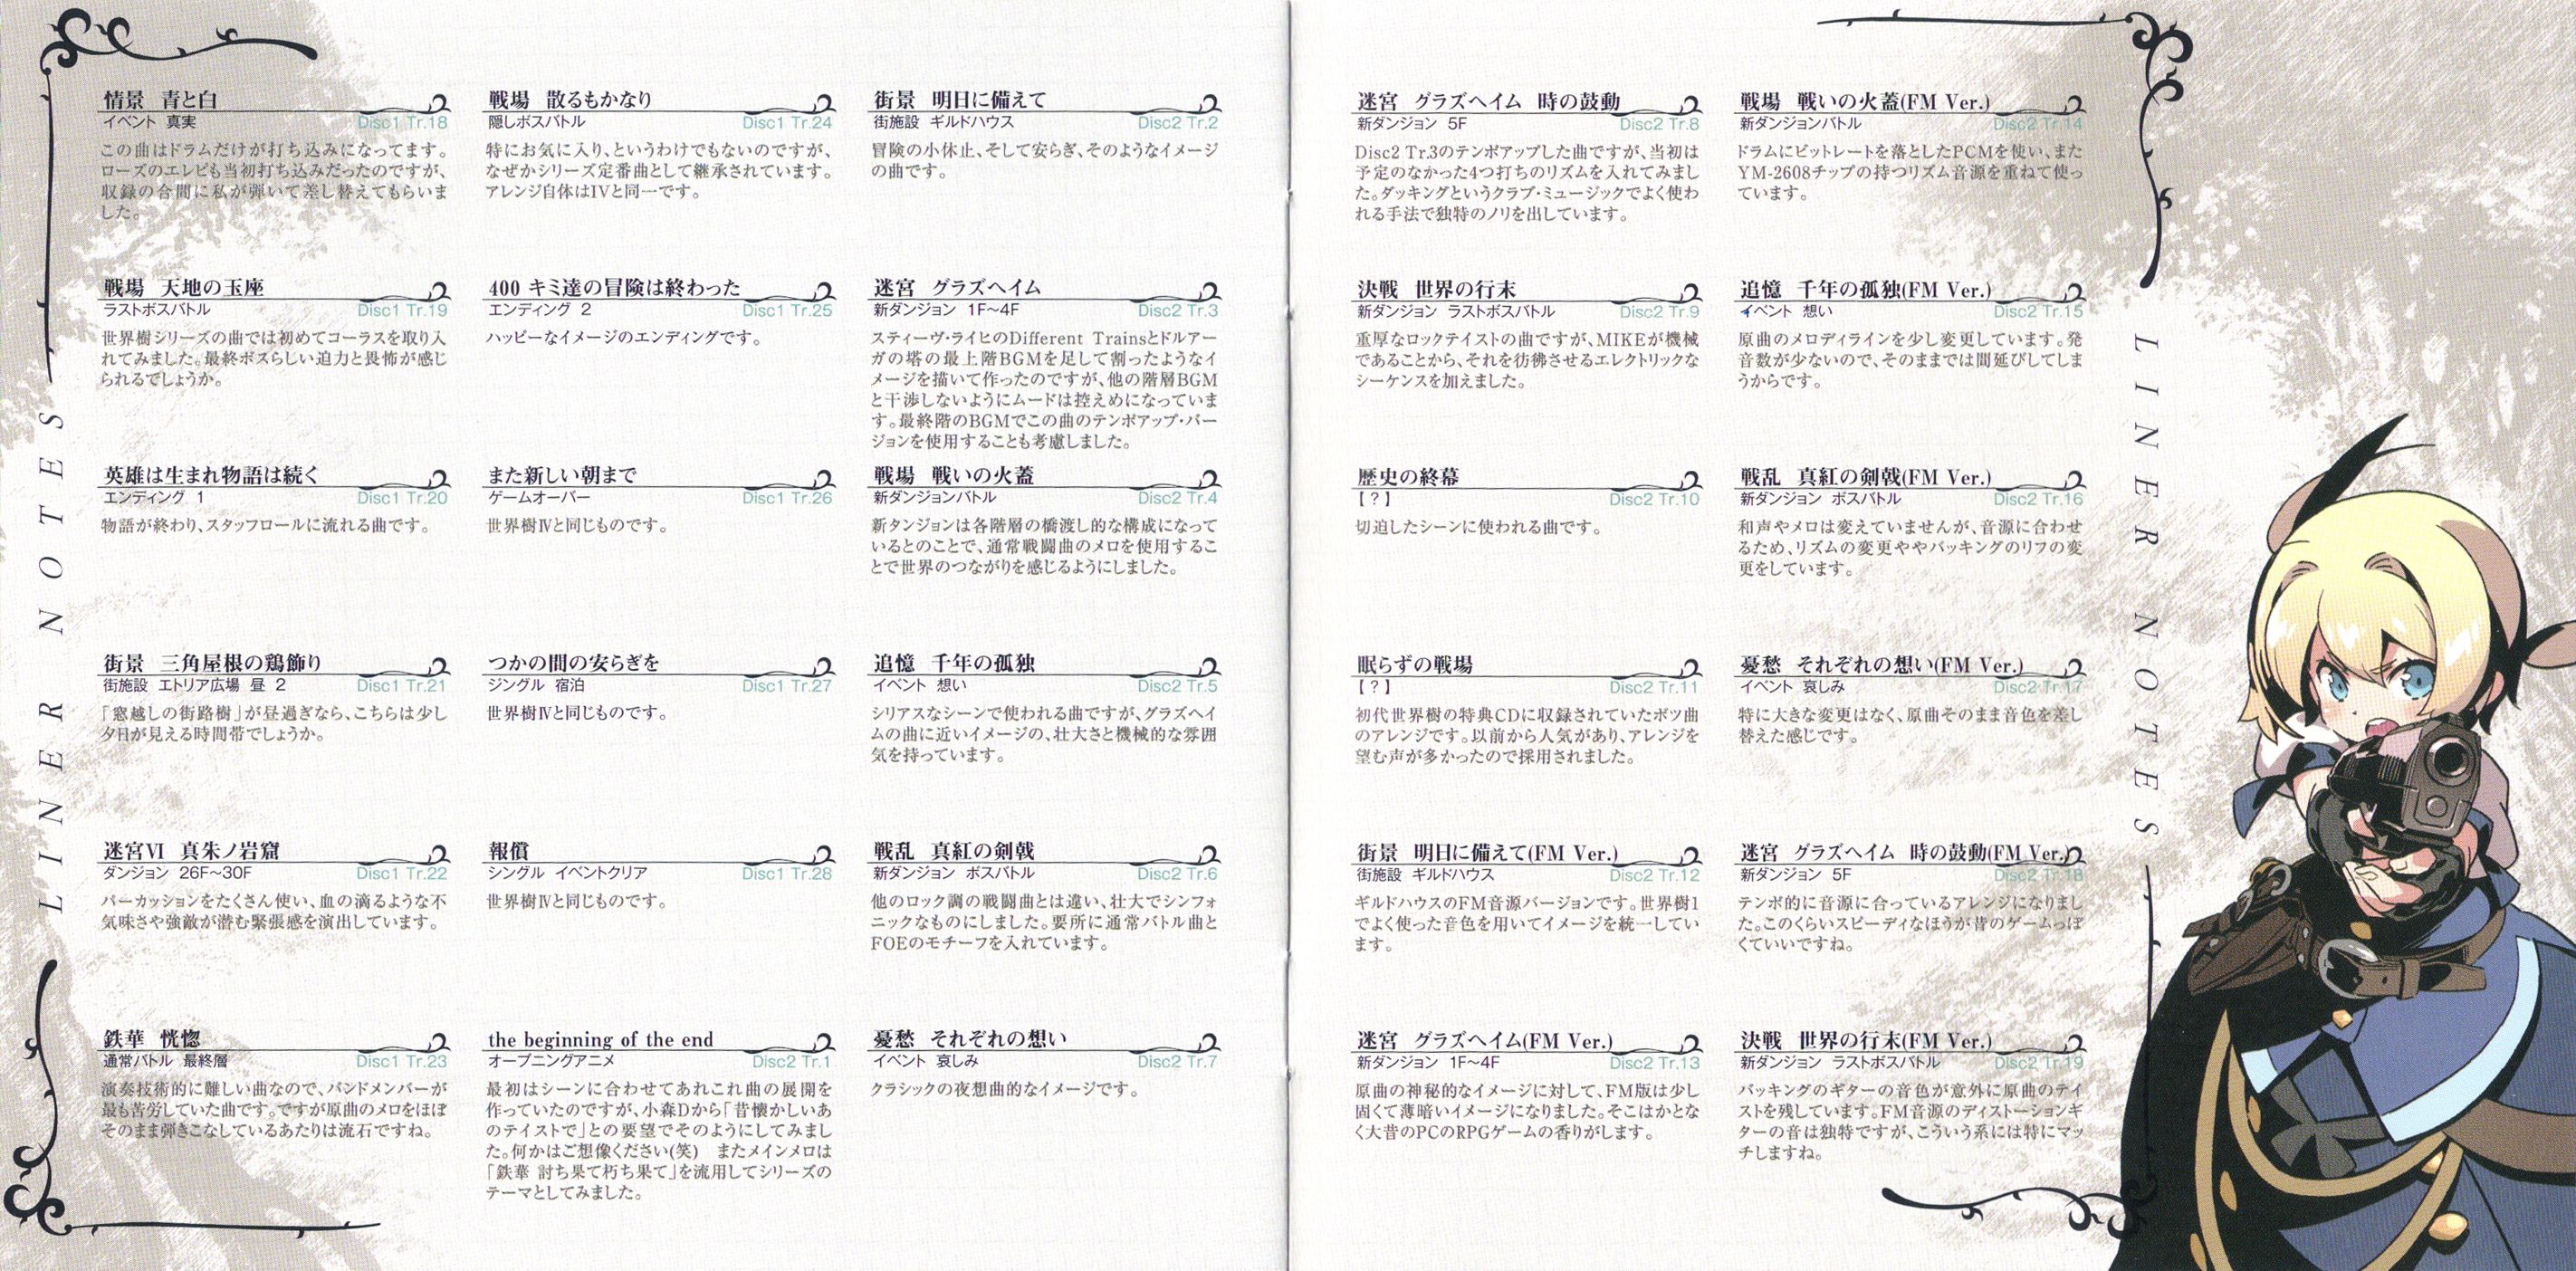 LINER NOTES
情景 青と白
イベント 真実 Disc1 Tr.18
この曲はドラムだけが打ち込みになってます。
ローズのエレピも当初打ち込みだったのですが、
収録の合間に私が弾いて差し替えてもらいま
した。
戦場 天地の玉座
ラストボスバトル Disc1 Tr.19
世界樹シリーズの曲では初めてコーラスを取り入
れてみました。最終ボスらしい迫力と畏怖が感じ
られるでしょうか。
英雄は生まれ物語は続く
エンディング 1 Disc1 Tr.20
物語が終わり、スタッフロールに流れる曲です。
街景 三角屋根の鶏飾り
街施設 エトリア広場 昼 2 Disc1 Tr.21
「窓越しの街路樹」が昼過ぎなら、こちらは少し
夕日が見える時間帯でしょうか。
迷宮VI 真朱ノ岩窟
ダンジョン 26F～30F Disc1 Tr.22
パーカッションをたくさん使い、血の滴るような不
気味さや強敵が潜む緊張感を演出しています。
鉄華 恍惚
通常バトル 最終層 Disc1 Tr.23
演奏技術的に難しい曲なので、バンドメンバーが
最も苦労していた曲です。ですが原曲のメロをほぼ
そのまま弾きこなしているあたりは流石ですね。
戦場 散るもかなり
隠しボスバトル Disc1 Tr.24
特にお気に入り、というわけでもないのですが、
なぜかシリーズ定番曲として継承されています。
アレンジ自体はIVと同一です。
400 キミ達の冒険は終わった
エンディング 2 Disc1 Tr.25
ハッピーなイメージのエンディングです。
また新しい朝まで
ゲームオーバー Disc1 Tr.26
世界樹Ⅳと同じものです。
つかの間の安らぎを
ジングル 宿泊 Disc1 Tr.27
世界樹Ⅳと同じものです。
報償
シングル イベントクリア Disc1 Tr.28
世界樹Ⅳと同じものです。
the beginning of the end
オープニングアニメ Disc2 Tr.1
最初はシーンに合わせてあれこれ曲の展開を
作っていたのですが、小森Dから「昔懐かしいあ
のテイストで」との要望でそのようにしてみまし
た。何かはご想像ください(笑) またメインメロは
「鉄華 討ち果て朽ち果て」を流用してシリーズの
テーマとしてみました。
街景 明日に備えて
街施設 ギルドハウス Disc2 Tr.2
冒険の小休止、そして安らぎ、そのようなイメージ
の曲です。
迷宮 グラズヘイム
新ダンジョン 1F～4F Disc2 Tr.3
スティーヴ・ライヒのDifferent Trainsとドルアー
ガの塔の最上階BGMを足して割ったようなイ
メージを描いて作ったのですが、他の階層BGM
と干渉しないようにムードは控えめになっていま
す。最終階のBGMでこの曲のテンポアップ・バー
ジョンを使用することも考慮しました。
戦場 戦いの火蓋
新ダンジョンバトル Disc2 Tr.4
新タンジョンは各階層の橋渡し的な構成になって
いるとのことで、通常戦闘曲のメロを使用するこ
とで世界のつながりを感じるようにしました。
追憶 千年の孤独
イベント 想い Disc2 Tr.5
シリアスなシーンで使われる曲ですが、グラズヘイ
ムの曲に近いイメージの、壮大さと機械的な雰囲
気を持っています。
戦乱 真紅の剣戟
新ダンジョン ボスバトル Disc2 Tr.6
他のロック調の戦闘曲とは違い、壮大でシンフォ
ニックなものにしました。要所に通常バトル曲と
FOEのモチーフを入れています。
憂愁 それぞれの想い
イベント 哀しみ Disc2 Tr.7
クラシックの夜想曲的なイメージです。
迷宮 グラズヘイム 時の鼓動
新ダンジョン 5F Disc2 Tr.8
Disc2 Tr.3のテンポアップした曲ですが、当初は
予定のなかった4つ打ちのリズムを入れてみまし
た。ダッキングというクラブ・ミュージックでよく使わ
れる手法で独特のノリを出しています。
決戦 世界の行末
新ダンジョン ラストボスバトル Disc2 Tr.9
重厚なロックテイストの曲ですが、MIKEが機械
であることから、それを彷彿させるエレクトリックな
シーケンスを加えました。
歴史の終幕
【?】 Disc2 Tr.10
切迫したシーンに使われる曲です。
眠らずの戦場
【?】 Disc2 Tr.11
初代世界樹の特典CDに収録されていたボツ曲
のアレンジです。以前から人気があり、アレンジを
望む声が多かったので採用されました。
街景 明日に備えて(FM Ver.)
街施設 ギルドハウス Disc2 Tr.12
ギルドハウスのFM音源バージョンです。世界樹1
でよく使った音色を用いてイメージを統一してい
ます。
迷宮 グラズヘイム(FM Ver.)
新ダンジョン 1F～4F Disc2 Tr.13
原曲の神秘的なイメージに対して、FM版は少し
固くて薄暗いイメージになりました。そこはかとな
く大昔のPCのRPGゲームの香りがします。
戦場 戦いの火蓋(FM Ver.)
新ダンジョンバトル Disc2 Tr.14
ドラムにビットレートを落としたPCMを使い、また
YM-2608チップの持つリズム音源を重ねて使っ
ています。
追憶 千年の孤独(FM Ver.)
イベント 想い Disc2 Tr.15
原曲のメロディラインを少し変更しています。発
音数が少ないので、そのままでは間延びしてしま
うからです。
戦乱 真紅の剣戟(FM Ver.)
新ダンジョン ボスバトル Disc2 Tr.16
和声やメロは変えていませんが、音源に合わせ
るため、リズムの変更ややバッキングのリフの変
更をしています。
憂愁 それぞれの想い(FM Ver.)
イベント 哀しみ Disc2 Tr.17
特に大きな変更はなく、原曲そのまま音色を差し
替えた感じです。
迷宮 グラズヘイム 時の鼓動(FM Ver.)
新ダンジョン 5F Disc2 Tr.18
テンポ的に音源に合っているアレンジになりまし
た。このくらいスピーディなほうが昔のゲームっぽ
くていいですね。
決戦 世界の行末(FM Ver.)
新ダンジョン ラストボスバトル Disc2 Tr.19
バッキングのギターの音色が意外に原曲のテイ
ストを残しています。FM音源のディストーションギ
ターの音は独特ですが、こういう系には特にマッ
チしますね。
LINER NOTES